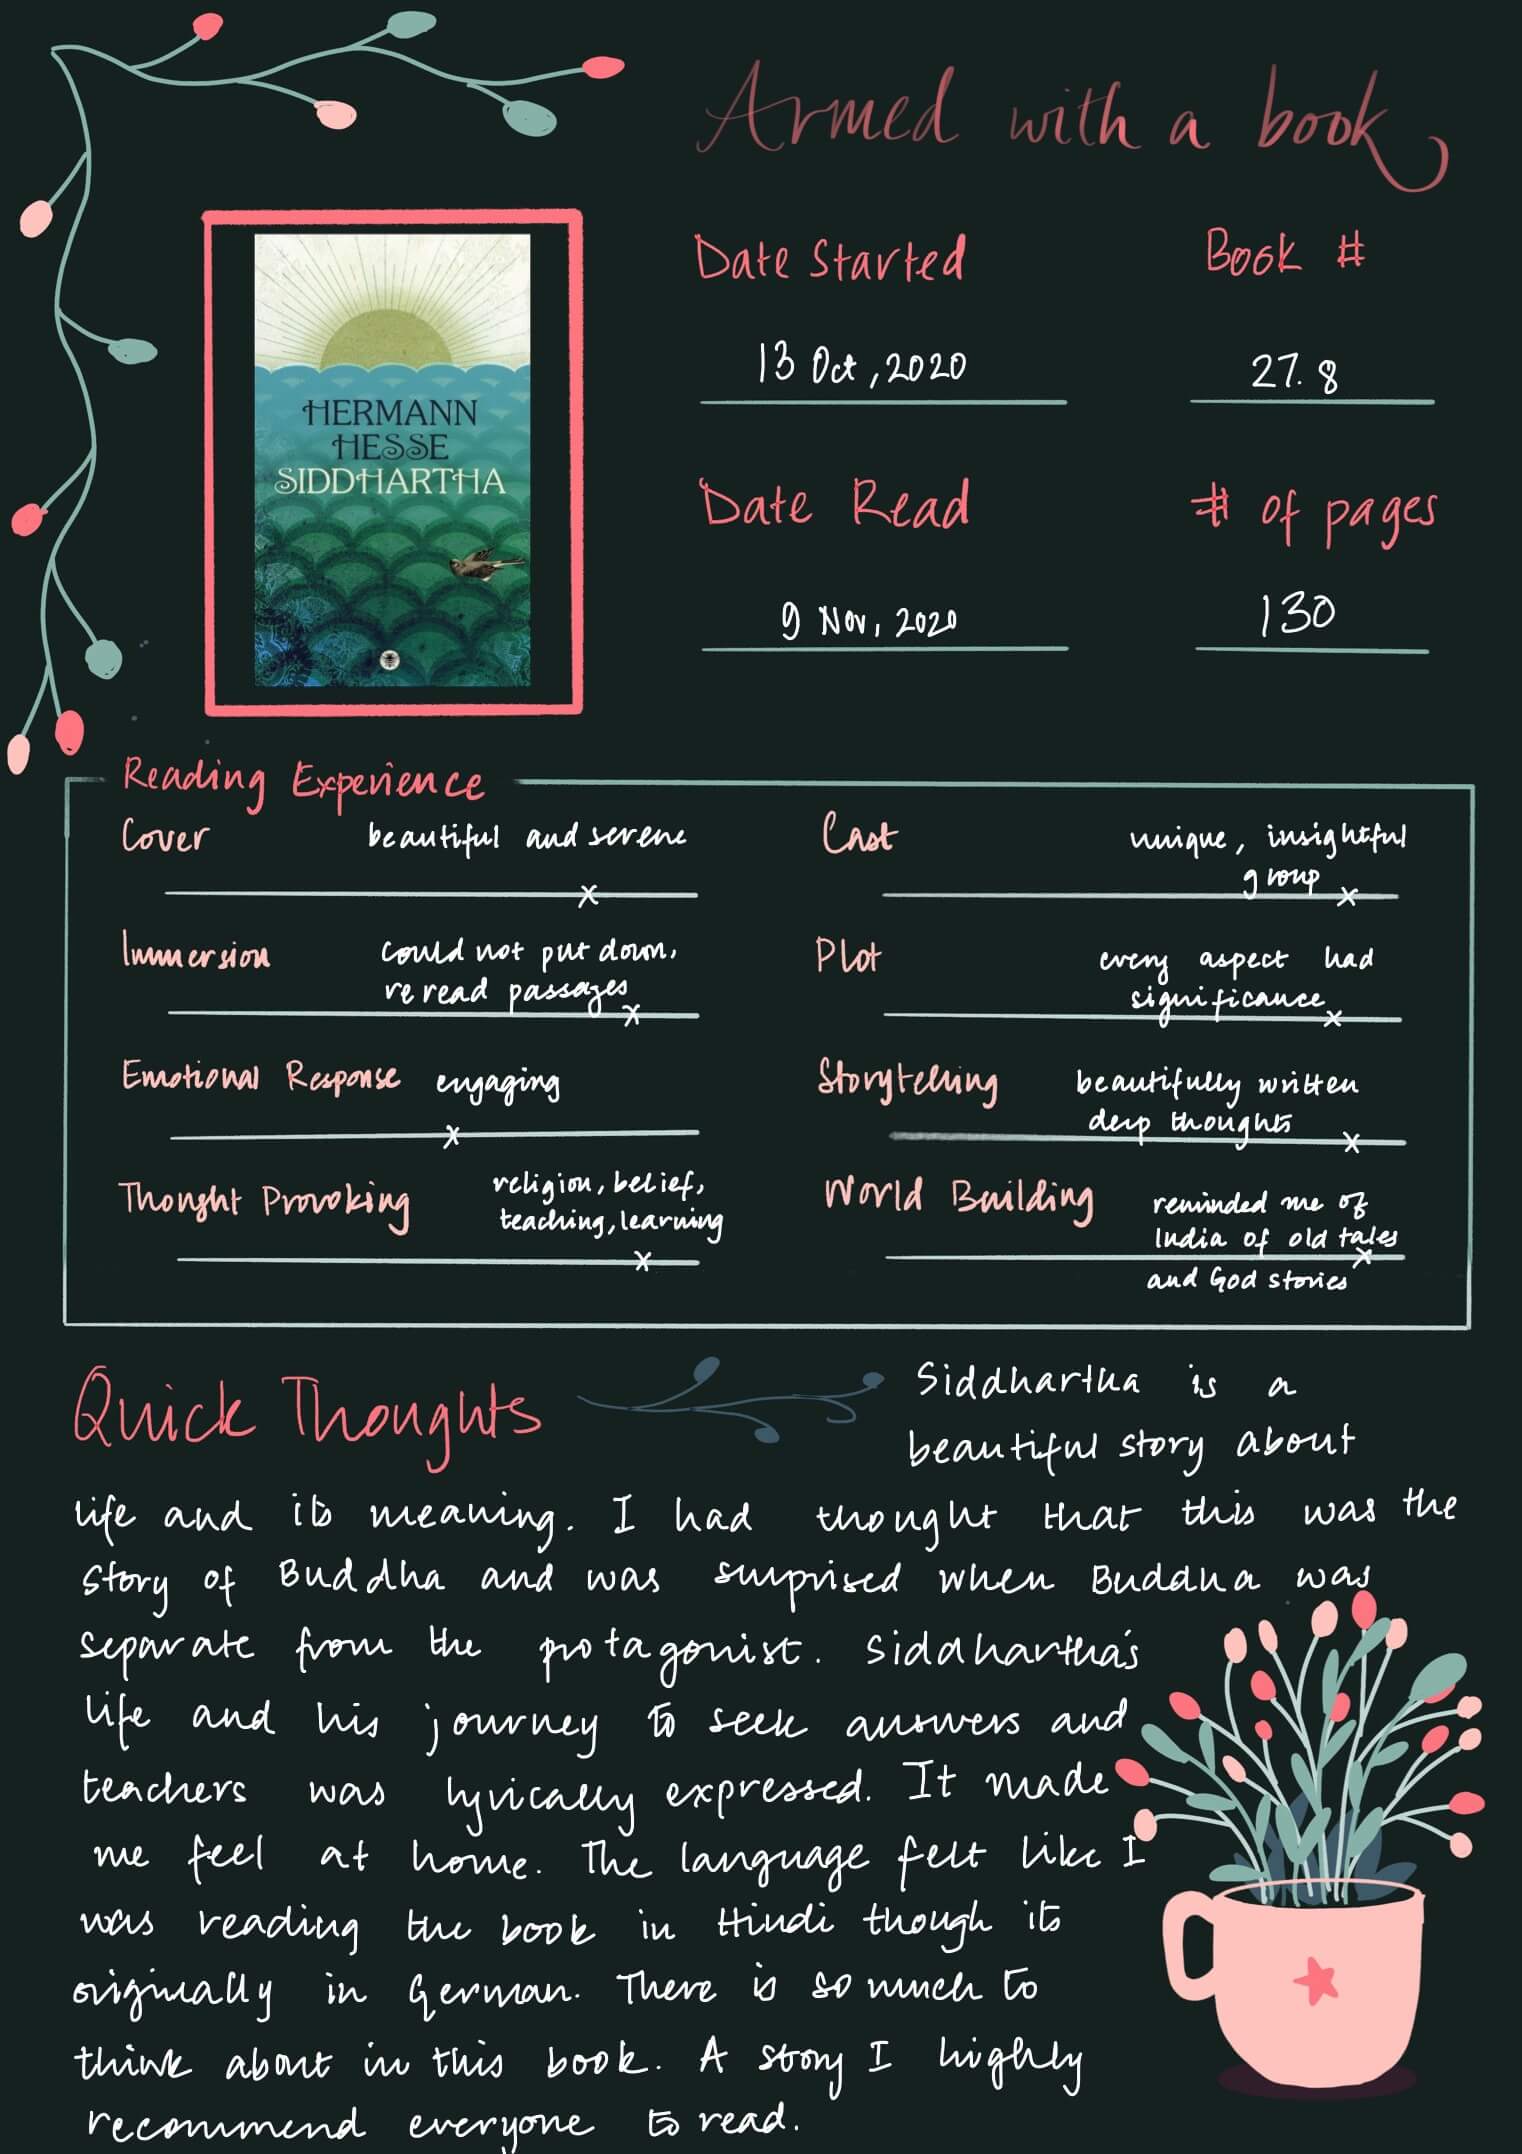 Armed with a book
HERMANN
HESSE
SIDDHARTHA
Date Started
Book #
13 Oct, 2020
27.8
Date Read
# of pages
9 Nov, 2020
130
Reading Experience
Cover
beautiful and serene
Cast
unique, insightful
group
Immersion
could not put down,
reread passages
Plot
every aspect had
significance
Emotional Response
engaging
Storytelling
beautifully written
deep thoughts
Thought Provoking
religion, belief,
teaching, learning
World Building
reminded me of
India of old tales
and God stories
Quick Thoughts
Siddhartha is a
beautiful story about
life and its meaning. I had thought that this was the
story of Buddha and was surprised when Buddha was
separate from the protagonist. Siddhartha's
life and his journey to seek answers and
teachers was lyrically expressed. It made
me feel at home. The language felt like I
was reading the book in Hindi though its
originally in German. There is so much to
think about in this book. A story I highly
recommend everyone to read.